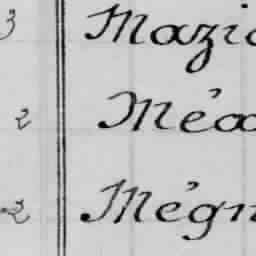 3 Mazi
2 Méa
2 Mégn